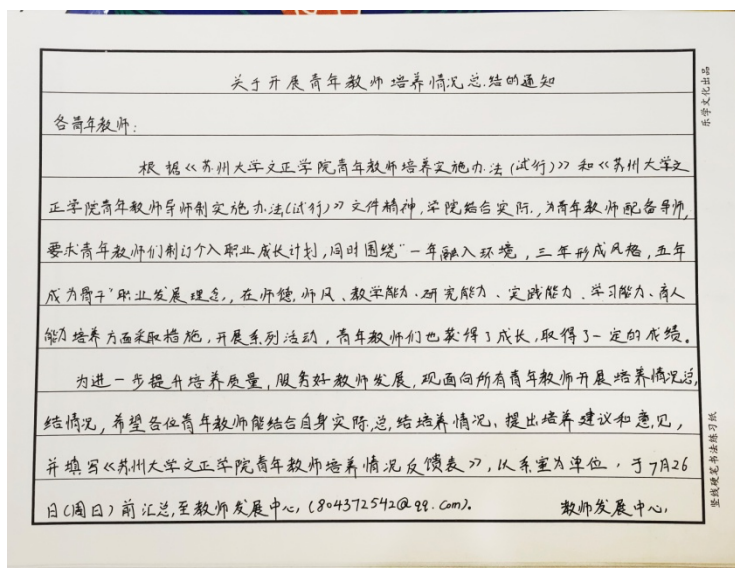 关于开展青年教师培养情况总结的通知
各青年教师:
根据《苏州大学文正学院青年教师培养实施办法(试行)》和《苏州大学文
正学院青年教师导师制实施办法(试行)》文件精神,学院结合实际,为青年教师配备导师,
要求青年教师们制订个人职业成长计划,同时围绕"一年融入环境,三年形成风格,五年
成为骨干"职业发展理念,在师德师风、教学能力、研究能力、实践能力、学习能力、育人
能力培养方面采取措施,开展系列活动,青年教师们也获得了成长,取得了一定的成绩。
为进一步提升培养质量,服务好教师发展,现面向所有青年教师开展培养情况总
结情况,希望各位青年教师能结合自身实际总结培养情况、提出培养建议和意见,
并填写《苏州大学文正学院青年教师培养情况反馈表》,以系室为单位,于7月26
日(周日)前汇总至教师发展中心(804372542@qq.com)。 教师发展中心
乐学文化出品
竖线硬笔书法练习纸